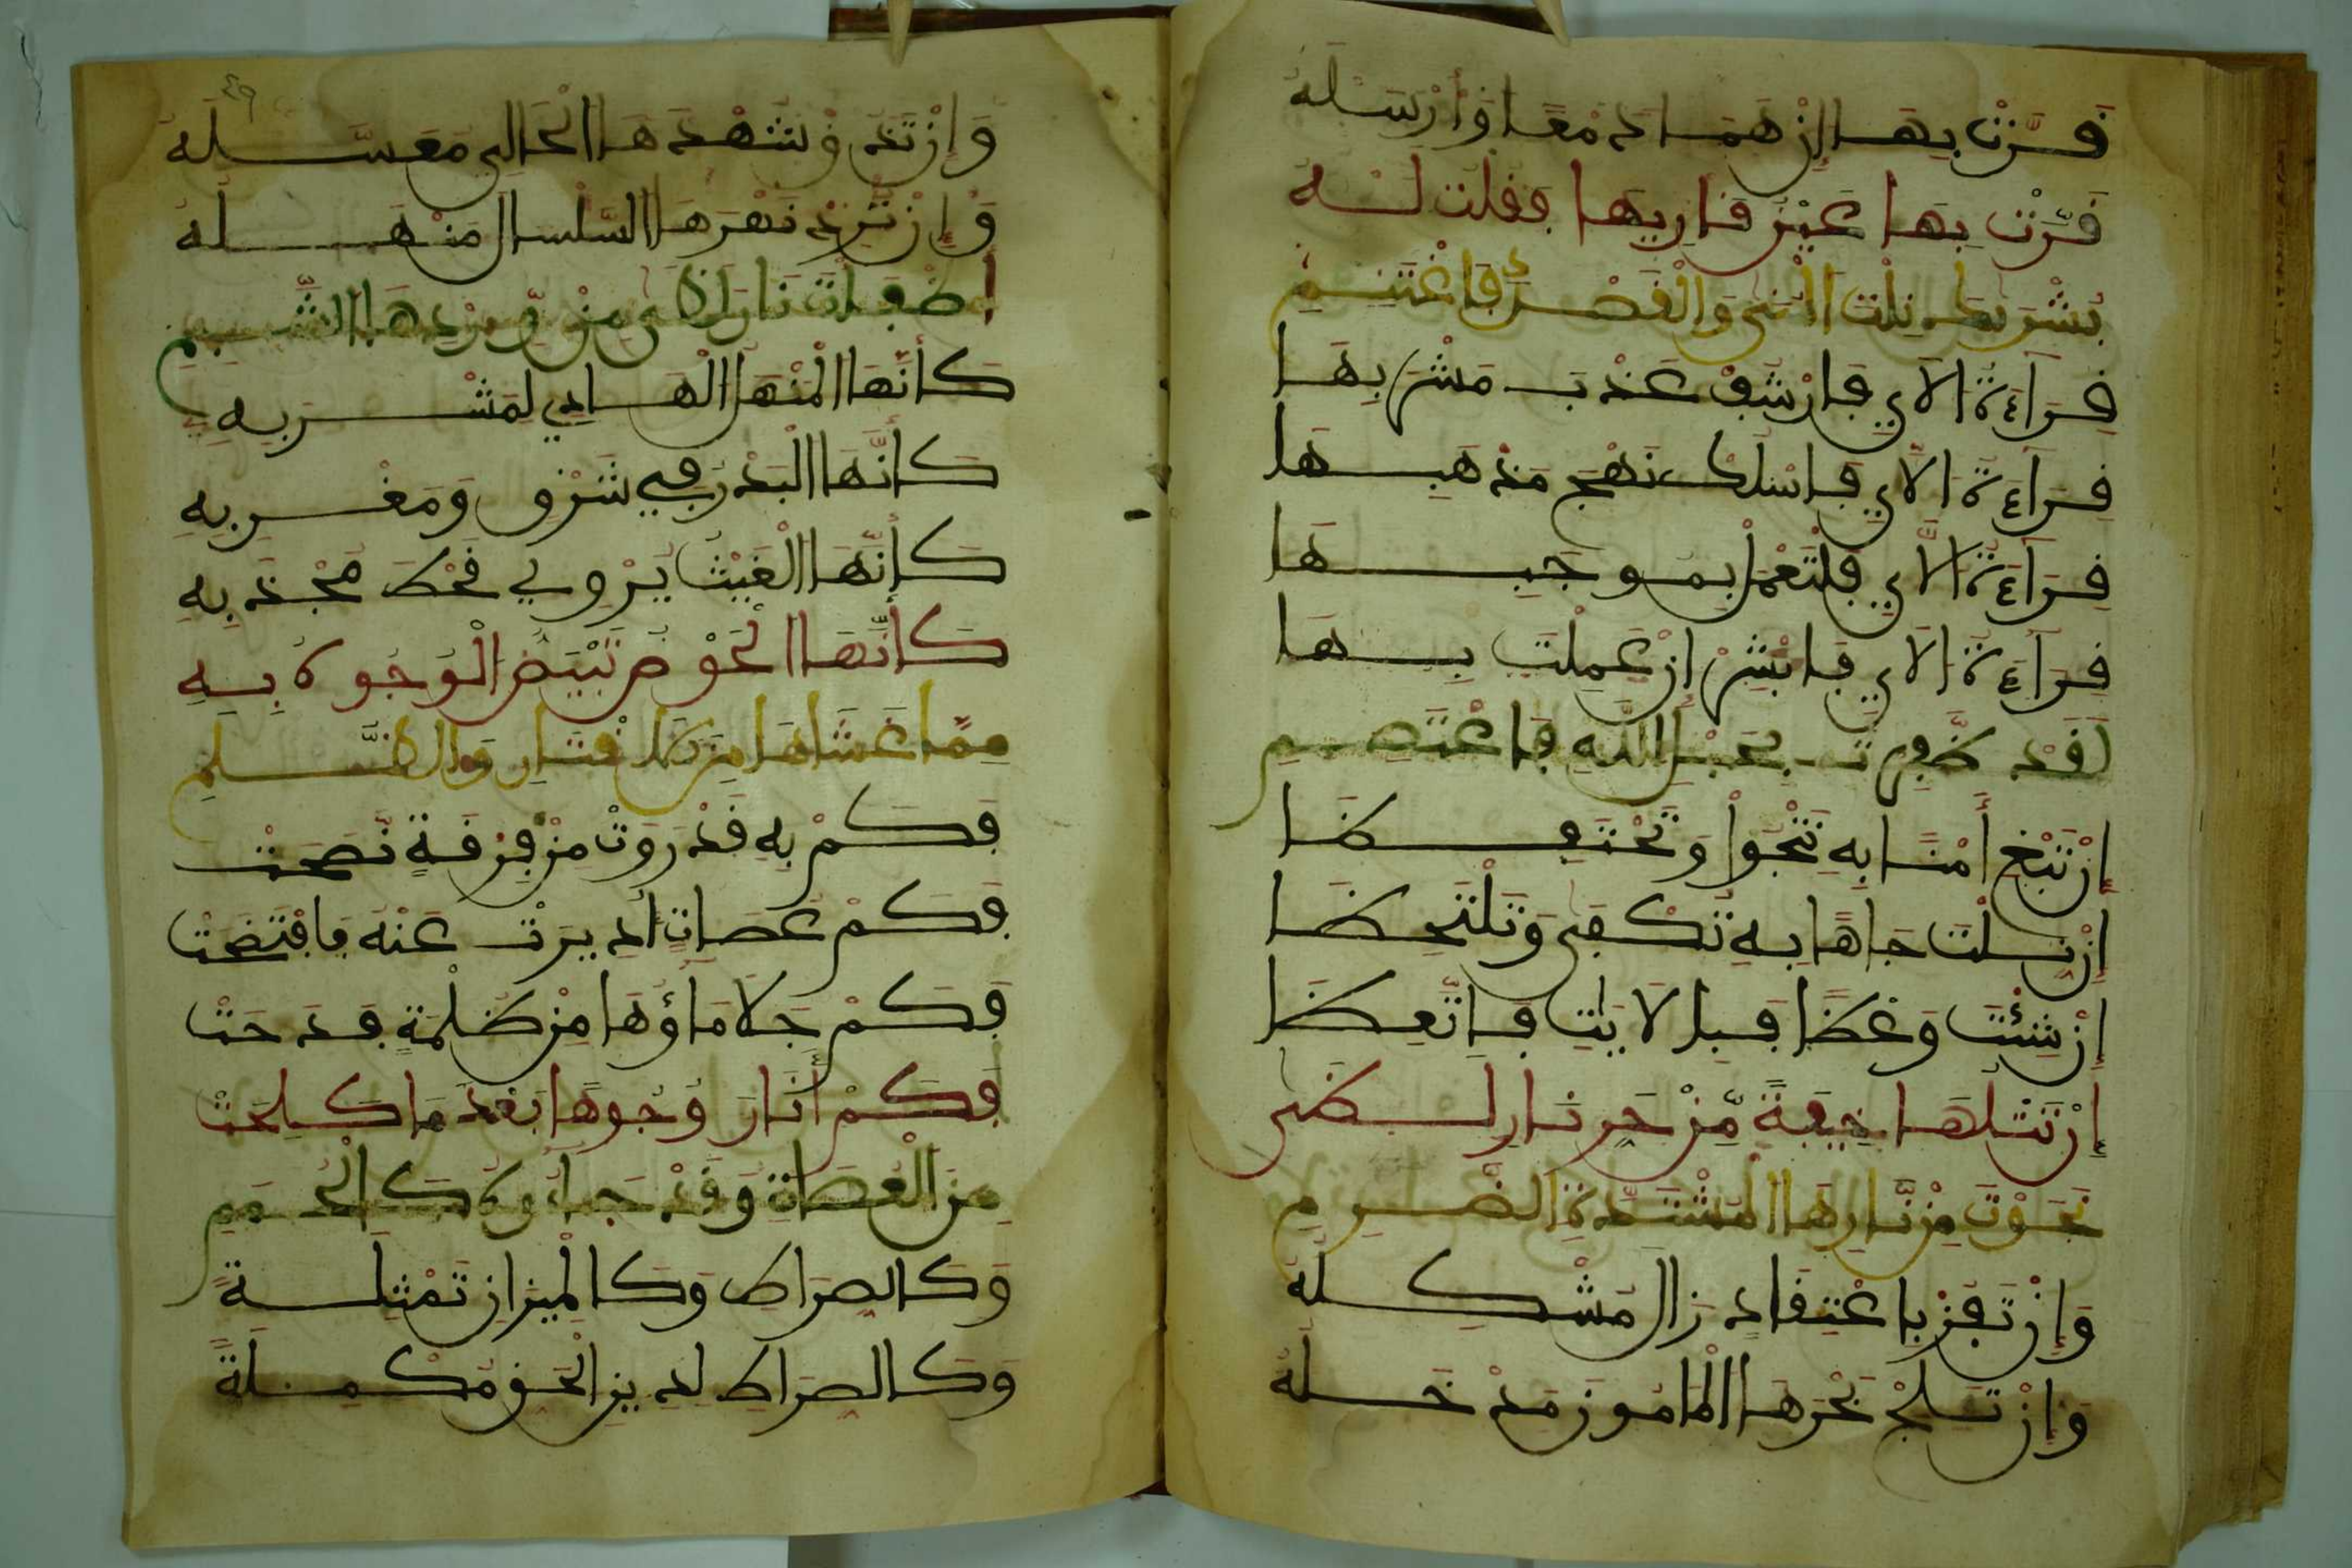 قَرَّتْ بِهَا إِنْ هَمَا دَمْعًا وَأَرْسَلَهُ
قَرَّتْ بِهَا عَيْنُ قَارِيهَا فَقُلْتُ لَهُ
بُشْرَى نِلْتَ الْمُنَى وَالْقَصْرَ فَاغْتَنِمِ
قِرَاءَةَ الآيِ فَارْشُفْ عَذْبَ مَشْرَبِهَا
قِرَاءَةَ الآيِ فَاسْلُكْ نَهْجَ مَذْهَبِهَا
قِرَاءَةَ الآيِ فَلْتَعْمَلْ بِمُوجَبِهَا
قِرَاءَةَ الآيِ فَابْشِرْ إِنْ عَمِلْتَ بِهَا
لَقَدْ ظَفِرْتَ بِحَبْلِ اللَّهِ فَاعْتَصِمِ
إِنْ تَبْغِ أَمْنًا بِهِ تَنْجُوا وَتَحْتَفِظَا
إِنْ سَلْتَ جَاهًا بِهِ تُكْفَى وَتَلْتَحِظَا
إِنْ شِئْتَ وَعْظًا فَبِالآيَاتِ فَاتَّعِظَا
إِنْ تَتْلُهَا خِيفَةً مِّنْ حَرِّ نَارِ لَظَى
نَجَوْتَ مِنْ نَّارِهَا الْمُشْتَدَّةِ الضَّرِمِ
وَإِنْ تَفُزْ بِاعْتِقَادٍ زَالَ مُشْكِلُهُ
وَإِنْ تَلِجْ بَحْرَهَا الْمَأْمُونَ مَدْخَلُهُ
وَإِنْ تَذُقْ شُهْدَهَا الْحَالِي مُعَسَّلُهُ
وَإِنْ تُرِدْ نَهْرَهَا السَّلْسَالَ مَنْهَلُهُ
أَطْفَأْتَ نَارَ لَظَى مِنْ وِّرْدِهَا الشَّبِمِ
كَأَنَّهَا الْمَنْهَلُ الْهَادِي لِمَشْرَبِهِ
كَأَنَّهَا الْبَدْرُ فِي شَرْقٍ وَمَغْرِبِهِ
كَأَنَّهَا الْغَيْثُ يُرْوِي قَحْطَ مُجْدَبِهِ
كَأَنَّهَا الْحَوْضُ تَبْيَضُّ الْوُجُوهُ بِهِ
مِمَّا غَشَاهَا مِنَ الْقَتَارِ وَالظُّلَمِ
فَكَمْ بِهِ قَدْ رَوَتْ مِنْ فِرْقَةٍ نَصَحَتْ
فَكَمْ عَصَاتٍ أُدِيرَتْ عَنْهُ فَافْتَضَحَتْ
فَكَمْ جَلاَ مَاؤُهَا مِنْ ظُلْمَةٍ قَدَحَتْ
فَكَمْ أَنَارَ وُجُوهًا بَعْدَ مَا كَلِحَتْ
مِنَ الْعُصَاةِ وَقَدْ جَاءُوهُ كَالْحُمَمِ
وَكَالصِّرَاطِ وَكَالْمِيزَانِ تَمْثِلَةً
وَكَالصِّرَاطِ لِدِينِ الْحَقِّ مُكْمِلَةً